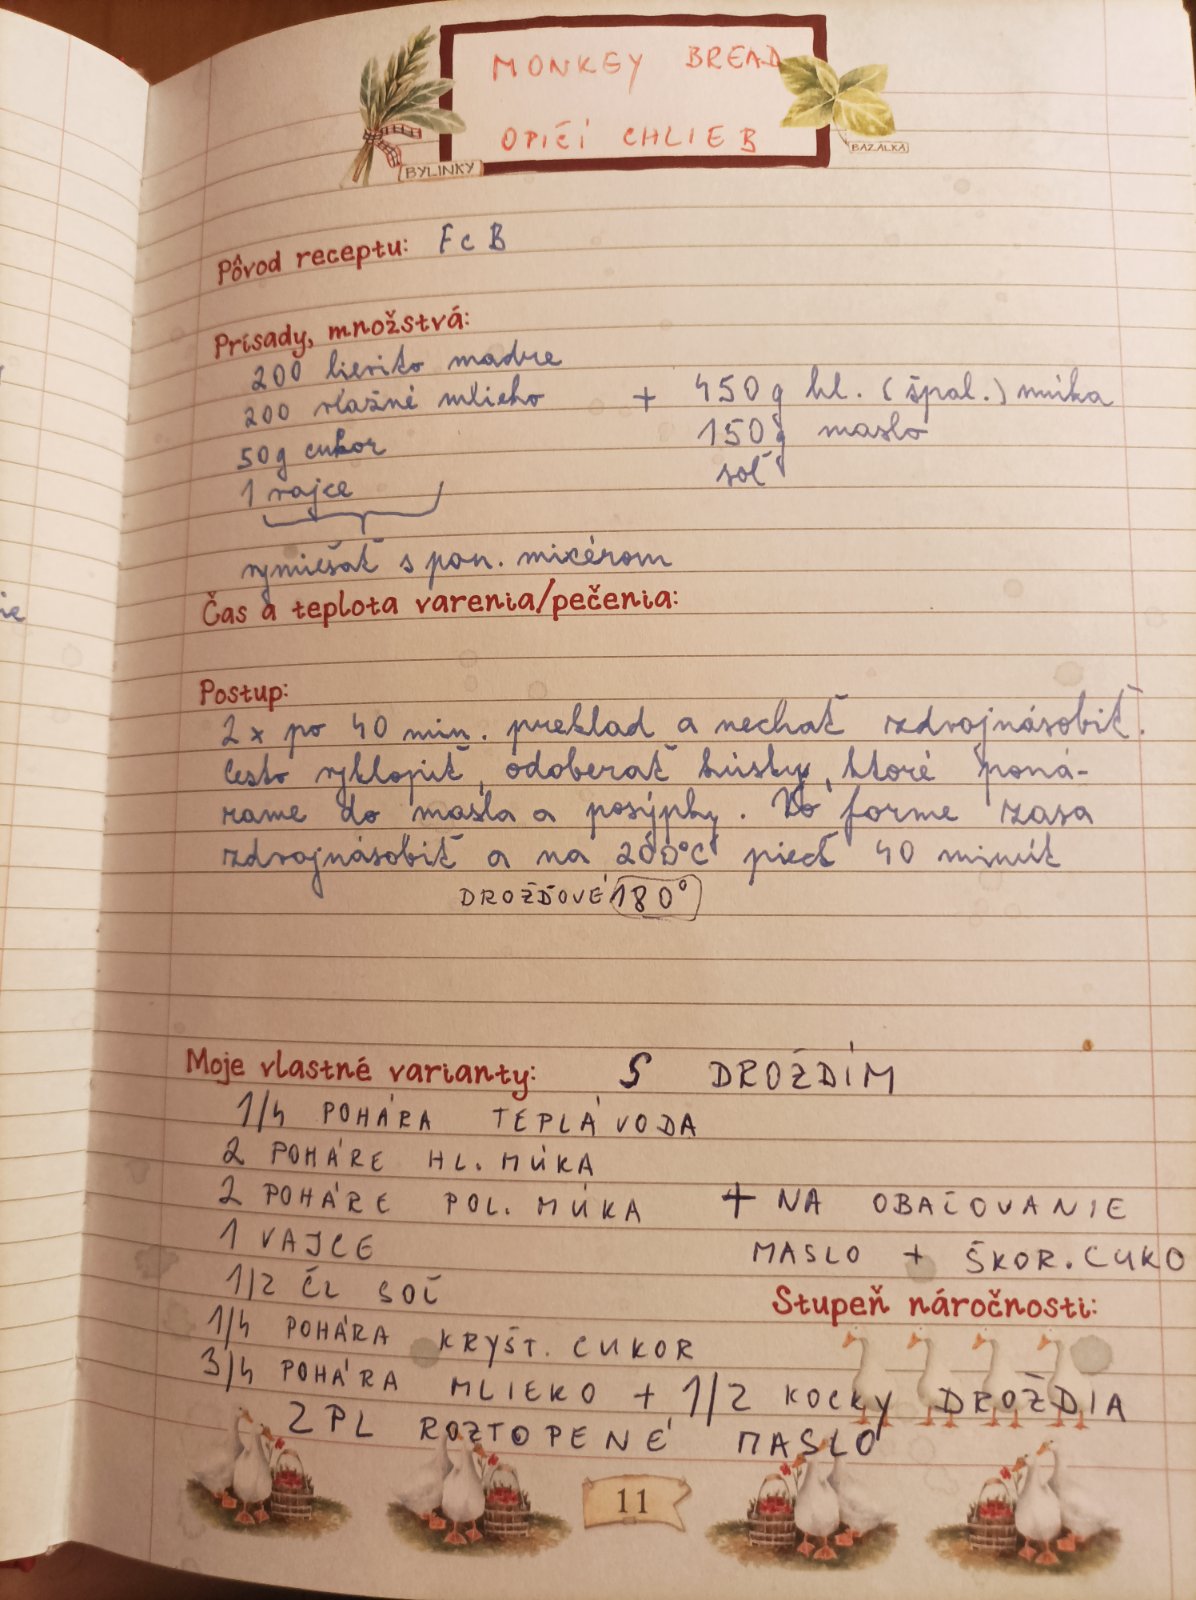 MONKEY BREAD
OPIČÍ CHLIEB
BYLINKY
BAZALKA
Pôvod receptu: FcB
Prísady, množstvá:
200 lievito madre
200 vlažné mlieko
50g cukor
1 vajce
+ 450g hl. (špal.) múka
150g maslo
soľ
vymiešať s pon. mixérom
Čas a teplota varenia/pečenia:
Postup:
2x po 40 min. preklad a nechať zdvojnásobiť.
Cesto vyklopiť, odoberať kúsky, ktoré poná-
rame do masla a posýpky. Vo forme zasa
zdvojnásobiť a na 200°C piecť 40 minút
DROŽĎOVÉ 180°
Moje vlastné varianty: S DROŽDÍM
1/4 POHÁRA TEPLÁ VODA
2 POHÁRE HL. MÚKA
2 POHÁRE POL. MÚKA
1 VAJCE
1/2 ČL SOĽ
+ NA OBAĽOVANIE
MASLO + ŠKOR. CUKO
Stupeň náročnosti:
1/4 POHÁRA KRYŠT. CUKOR
3/4 POHÁRA MLIEKO + 1/2 KOCKY DROŽDIA
2PL ROZTOPENÉ MASLO
11